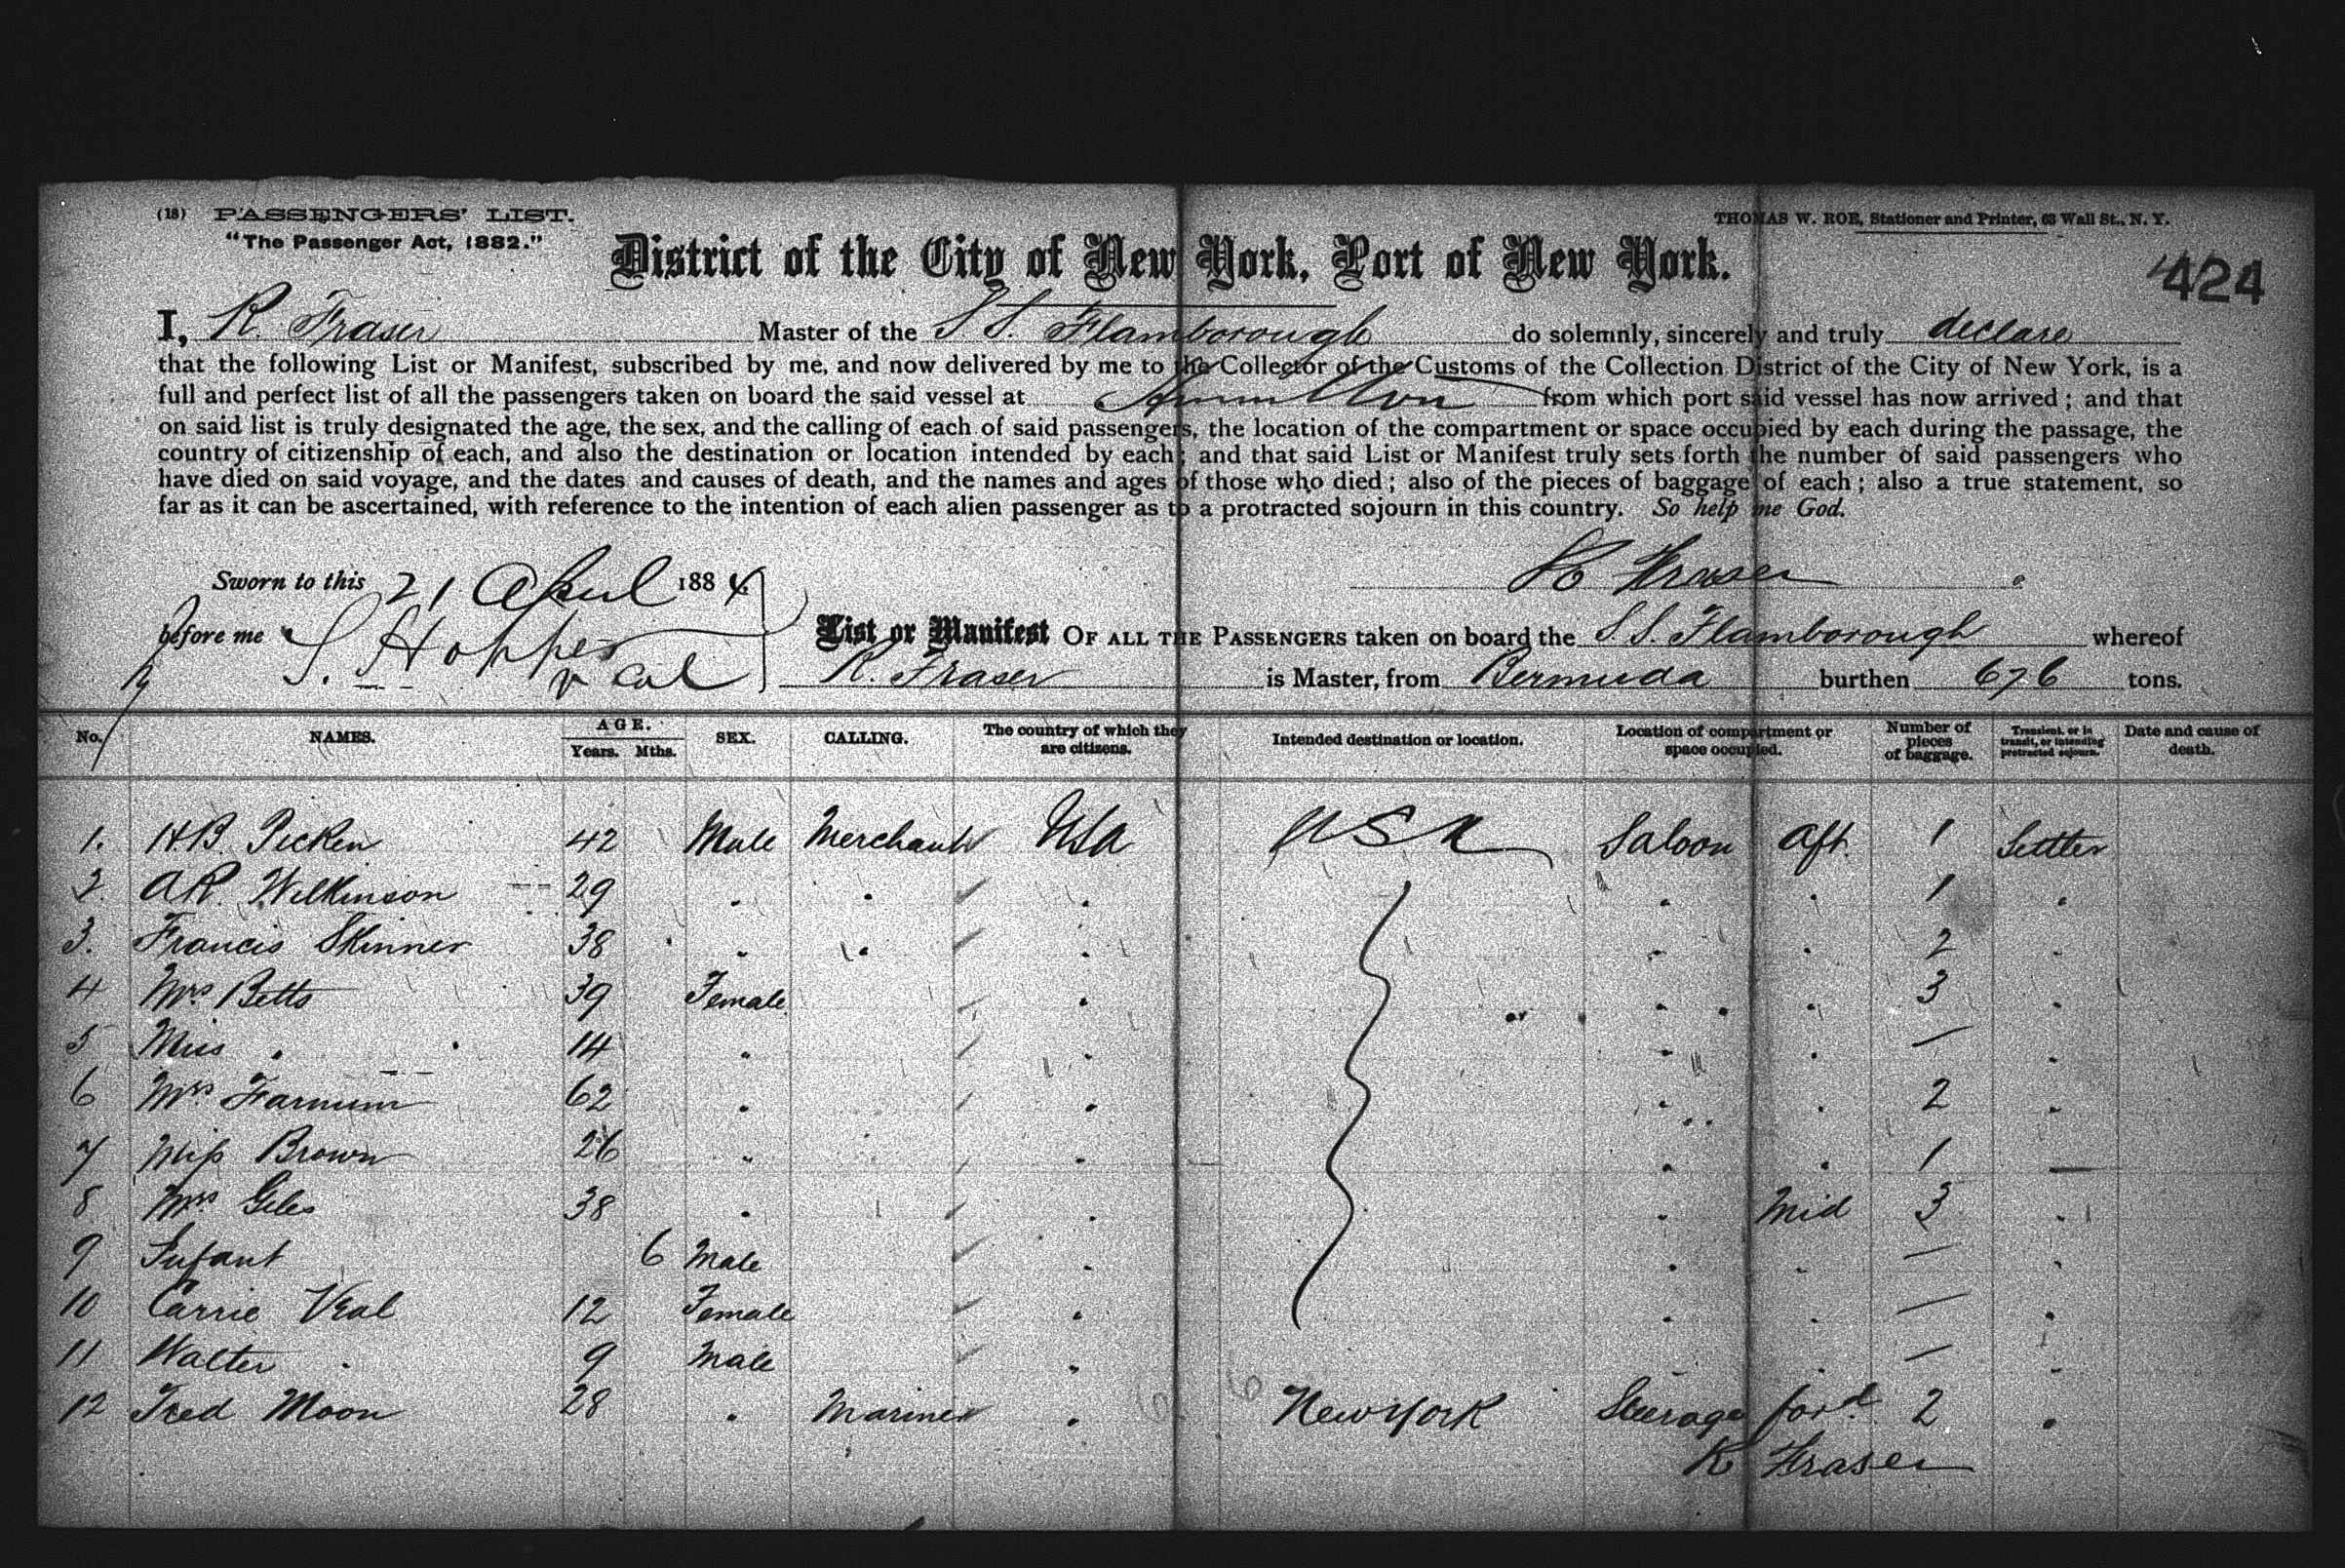 (18) PASSENGERS' LIST.
THOMAS W. ROE, Stationer and Printer, 63 Wall St., N. Y.
"The Passenger Act, 1882."
District of the City of New York, Port of New York.
424
I, R. Fraser Master of the S S. Flamborough do solemnly, sincerely and truly declare
that the following List or Manifest, subscribed by me, and now delivered by me to the Collector of the Customs of the Collection District of the City of New York, is a
full and perfect list of all the passengers taken on board the said vessel at Hamilton from which port said vessel has now arrived; and that
on said list is truly designated the age, the sex, and the calling of each of said passengers, the location of the compartment or space occupied by each during the passage, the
country of citizenship of each, and also the destination or location intended by each; and that said List or Manifest truly sets forth the number of said passengers who
have died on said voyage, and the dates and causes of death, and the names and ages of those who died; also of the pieces of baggage of each; also a true statement, so
far as it can be ascertained, with reference to the intention of each alien passenger as to a protracted sojourn in this country. So help me God.
Sworn to this 21 April 1884
R Fraser
before me S. Hopper
List or Manifest OF ALL THE PASSENGERS taken on board the S. S. Flamborough whereof
R. Fraser is Master, from Bermuda burthen 676 tons.
No. NAMES. AGE. Years. Mths. SEX. CALLING. The country of which they are citizens. Intended destination or location. Location of compartment or space occupied. Number of pieces of baggage. Transient, or in transit, or intending protracted sojourn. Date and cause of death.
1. HB Picken 42 Male Merchant USA USA Saloon Aft. 1 Settler
2. AR. Wilkinson 29 . . . . . 1 .
3. Francis Skinner 38 . . . . . 2 .
4 Mrs Betts 39 Female . . . 3 .
5 Miss . 14 . . . . — .
6 Mrs Farnum 62 . . . . 2 .
7 Miss Brown 26 . . . . 1 —
8 Mrs Giles 38 . . . Mid 3 .
9 Infant 6 Male . . . — .
10 Carrie Veal 12 Female . . . — .
11 Walter . 9 Male . . . — .
12 Fred Moon 28 . Mariner . New York Steerage ford 2 .
R Fraser